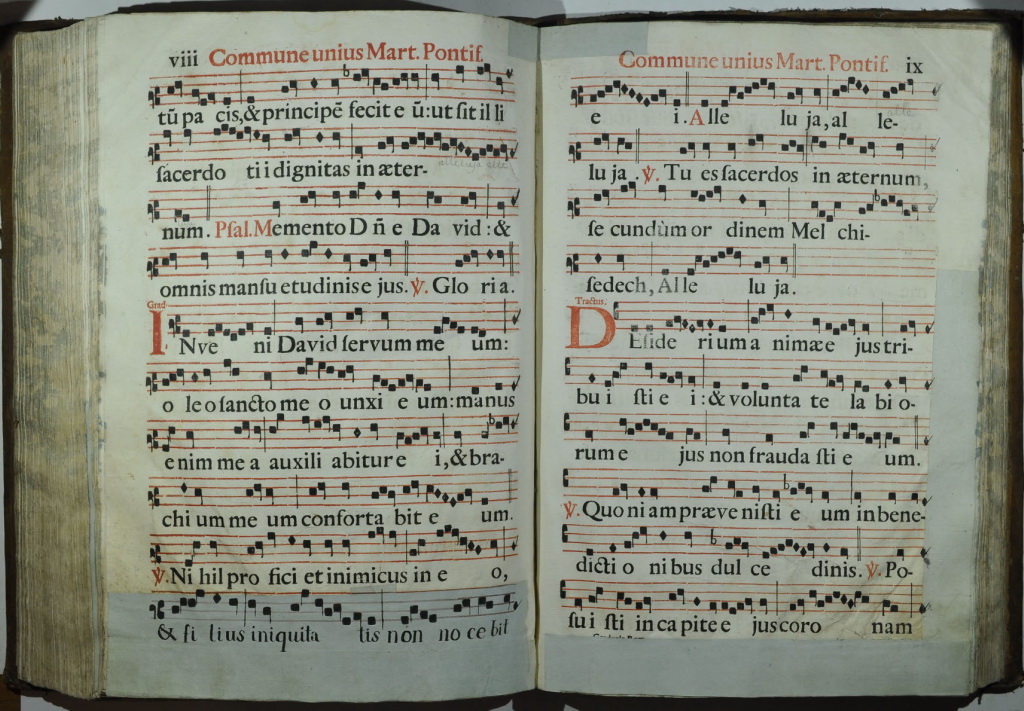 viii Commune unius Mart. Pontif.
tũ pa cis, & principẽ fecit e ũ: ut sit il li
sacerdo ti i dignitas in æter-
num. Psal. Memento D ñ e Da vid: &
omnis mansu etudinis e jus. ℣. Glo ri a.
Grad.
INve ni David servum me um:
o le o sancto me o unxi e um: manus
enim me a auxili abitur e i, & bra-
chi um me um conforta bit e um.
℣. Ni hil pro fici et inimicus in e o,
& fi lius iniquita tis non no ce bit
Commune unius Mart. Pontif. ix
e i. Alle lu ja, al le-
lu ja. ℣. Tu es sacerdos in æternum,
se cundùm or dinem Mel chi-
sedech, Al le lu ja.
Tractus.
DEside ri um a nimæ e jus tri-
bu i sti e i: & volunta te la bi o-
rum e jus non frauda sti e um.
℣. Quo ni am præve nisti e um in bene-
dicti o nibus dul ce dinis. ℣. Po-
su i sti in ca pite e jus coro nam